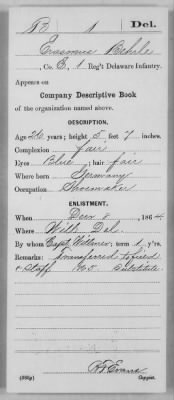 B 1 Del.
Erasmus Behrle
, Co. E, 1 Reg't Delaware Infantry.
Appears on
Company Descriptive Book
of the organization named above.
DESCRIPTION.
Age 26 years; height 5 feet 7 inches.
Complexion fair
Eyes Blue; hair fair
Where born Germany
Occupation Shoemaker
ENLISTMENT.
When Decr 8, 1864
Where Wilm Del.
By whom Capt Wilmer; term 1 y'rs.
Remarks: Transferred to field
& Staff. Substitute.
R F Evans
(383g) Copyist.